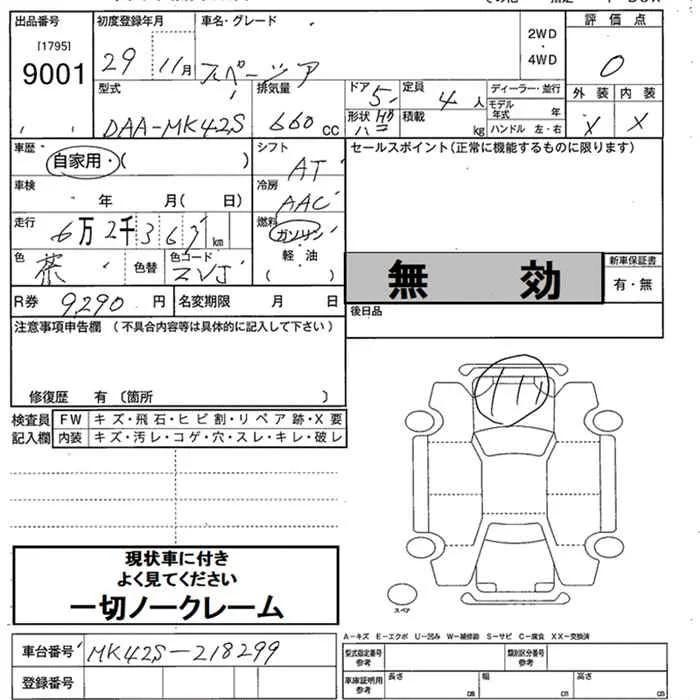 出品番号 初度登録年月 車名・グレード 評価点
[1795]
9001
29 11月 スペーシア 2WD・4WD 0
型式 排気量 ドア 5 定員 4人 ディーラー・並行 外装 内装
DAA-MK42S 660 cc 形状 HB 積載 kg モデル年式 年 X X
ハンドル 左・右
車歴 自家用・( ) シフト AT セールスポイント(正常に機能するものに限ります)
車検 年 月( 日) 冷房 AAC
走行 6万2千363km 燃料 ガソリン
色 茶 色替 色コード ZVJ 軽油 ( )
無効 新車保証書
有・無
R券 9,290円 名変期限 月 日 後日品
注意事項申告欄 (不具合内容等は具体的に記入して下さい)
修復歴 有 (箇所 )
検査員 FW キズ・飛石・ヒビ割・リペア跡・X要
記入欄 内装 キズ・汚レ・コゲ・穴・スレ・キレ・破レ
現状車に付き
よく見てください
一切ノークレーム
スペア
A-キズ E-エクボ U-凹み W-補修跡 S-サビ C-腐食 XX-交換済
車台番号 MK42S-218299 型式指定番号 参考 類別区分番号 参考
登録番号 車庫証明用 参考 長さ cm 幅 cm 高さ cm